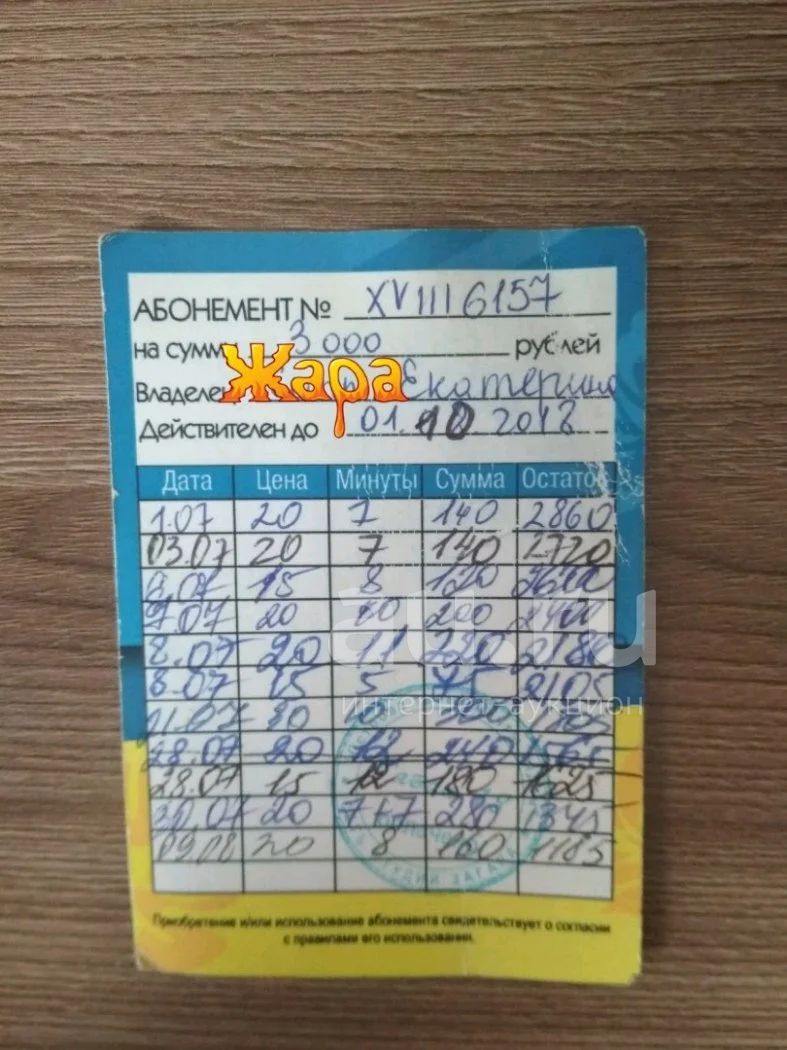 АБОНЕМЕНТ № XVIII 6157
на сумм 3 000 рублей
Владелец Жара Екатерина
Действителен до 01.10.2018
Дата Цена Минуты Сумма Остаток
1.07 20 7 140 2860
03.07 20 7 140 2720
15 8 120 2600
7.07 20 10 200 2400
8.07 20 11 220 2180
8.07 15 5 75 2105
11.07 30 10 300 1805
28.07 20 12 240 1565
28.07 15 12 180 1625
30.07 20 7+7 280 1345
09.08 20 8 160 1185
au.ru
интернет-аукцион
Приобретение и/или использование абонемента свидетельствует о согласии
с правилами его использования.